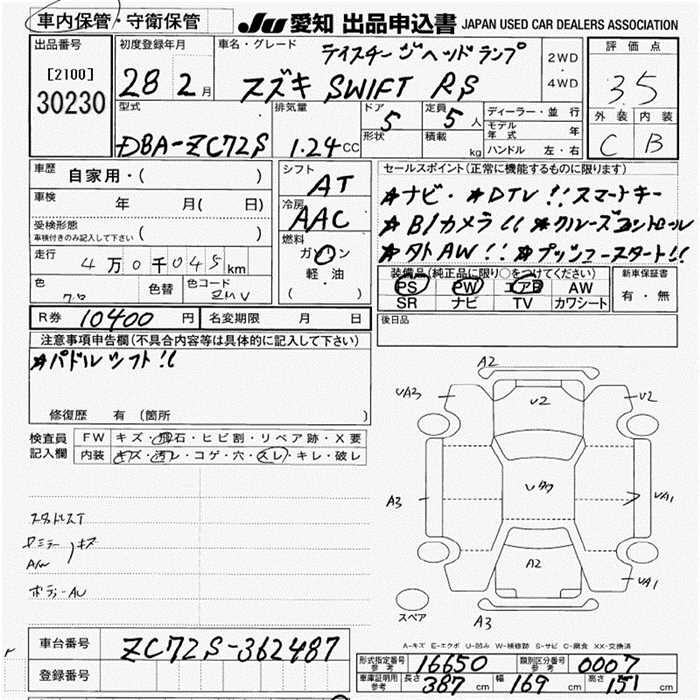 車内保管・守衛保管
JU 愛知 出品申込書 JAPAN USED CAR DEALERS ASSOCIATION
出品番号
[2100]
30230
初度登録年月
28 2月
車名・グレード
ディスチャージヘッドランプ
スズキ SWIFT RS
2WD
・
4WD
評価点
35
外装 内装
C B
型式
DBA-ZC72S
排気量
1.24cc
ドア 5
形状
定員 5人
積載 kg
ディーラー・並行
モデル年式 年
ハンドル 左・右
車歴 自家用・( )
車検 年 月( 日)
受検形態
車検付きのみ記入して下さい ( )
走行 4万0千045km
色 色替 色コード
ZMV
シフト
AT
冷房
AAC
燃料
ガソリン
軽油
( )
セールスポイント(正常に機能するものに限ります)
★ナビ・★DTV!!スマートキー
★B/カメラ!!★クルーズコントロール
★AW!!★プッシュスタート!!
装備品(純正品に限り○をつけてください)
PS PW エアB AW
SR ナビ TV カワシート
新車保証書
有・無
R券 10400円 名変期限 月 日
後日品
注意事項申告欄(不具合内容等は具体的に記入して下さい)
★パドルシフト!!
修復歴 有(箇所 )
検査員記入欄
FW キズ・飛石・ヒビ割・リペア跡・X要
内装 キズ・汚レ・コゲ・穴・スレ・キレ・破レ
スタッドレスT
キズ
A/W
ボディーAU
A2
UA3
U2
U2
A3
UA1
A2
UA1
A3
スペア
A-キズ E-エクボ U-凹み W-補修跡 S-サビ C-腐食 XX-交換済
車台番号 ZC72S-362487
登録番号
形式指定番号 参考 16650 類別区分番号 参考 0007
車庫証明用 参考 長さ 387cm 幅 169cm 高さ 151cm